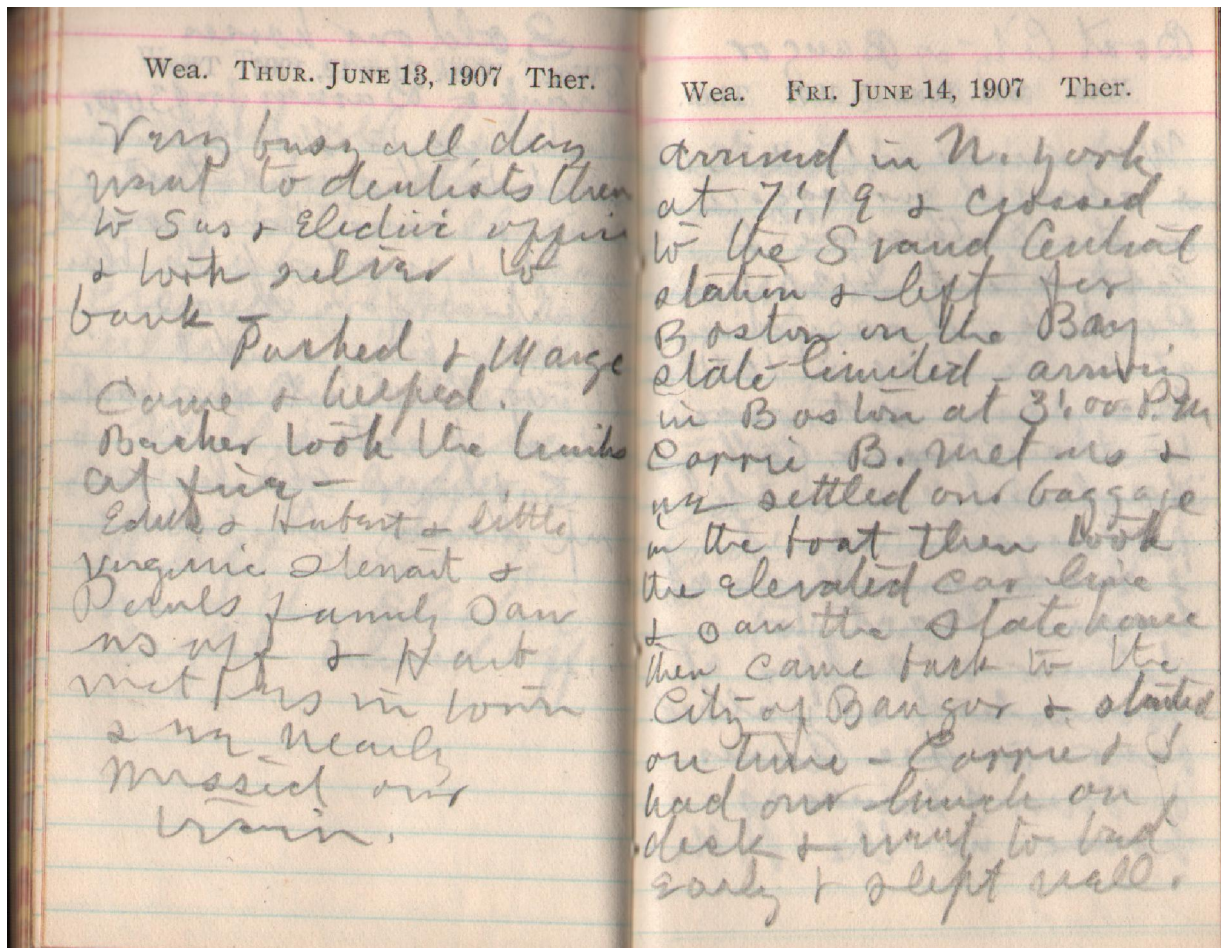 Wea. THUR. JUNE 13, 1907 Ther.
Very busy all day
went to dentists then
to Gas & Electric office
& took silver to
bank –
Packed & Marge
came & helped.
Becker took the trunks
at five –
& Hubert & little
Virginia Stewart &
family saw
us off & Harb
met us in town
& we nearly
missed our
train.
Wea. FRI. JUNE 14, 1907 Ther.
arrived in N. York
at 7:19 & crossed
to the Grand Central
station & left for
Boston on the Bay
state limited – arriving
in Boston at 3:00 P.M
Carrie B. met us &
we settled our baggage
in the boat then took
the elevated car line
& saw the state house
then came back to the
City of Bangor & started
on time – Carrie & I
had our lunch on
deck & went to bed
early & slept well.